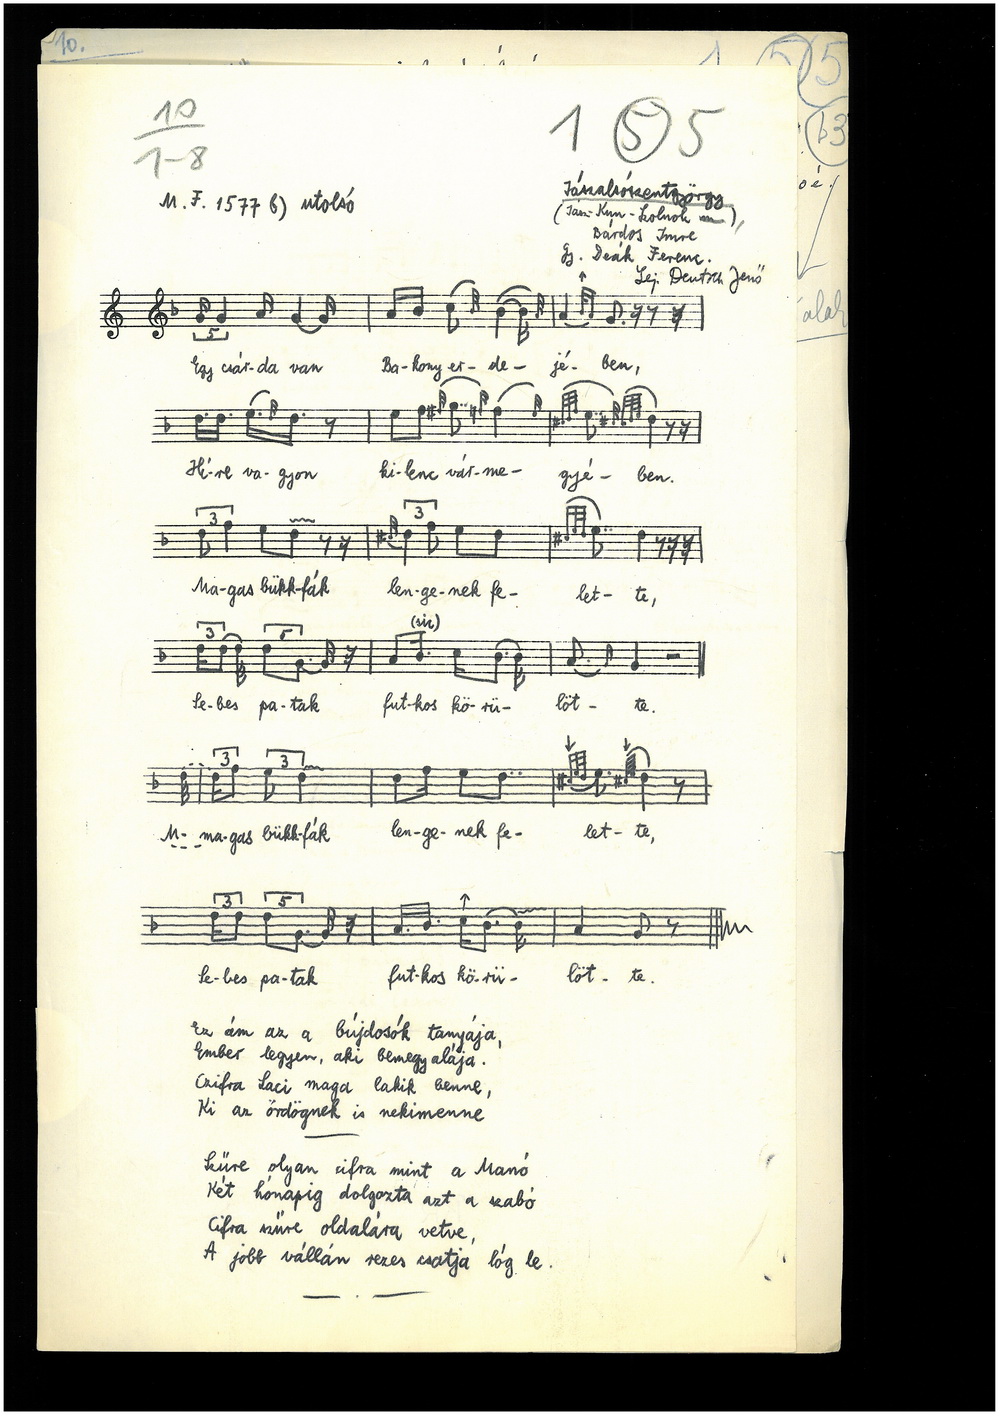 10.
1 5 5
10
1-8
1 5 5
b3
M. F. 1577 b) utolsó
Jászalsószentgyörgy
(Jász-Kun-Szolnok m),
Bárdos Imre
Gy. Deák Ferenc.
Lej. Deutsch Jenő
5
Egy csár-da van Ba-kony er-de-jé-ben,
Hí-re va-gyon ki-lenc vár-me-gyé-ben.
3 3
Ma-gas bükk-fák len-ge-nek fe-let-te,
3 5 (sic)
Se-bes pa-tak fut-kos kö-rü-löt-te.
3 3
M- ma-gas bükk-fák len-ge-nek fe-let-te,
3 5
Se-bes pa-tak fut-kos kö-rü-löt-te.
Ez ám az a bújdosók tanyája,
Ember legyen, aki bemegy alája.
Czifra Laci maga lakik benne,
Ki az ördögnek is nekimenne
Szüre olyan cifra mint a Manó
Két hónapig dolgozta azt a szabó
Cifra szüre oldalára vetve,
A jobb vállán rezes csatja lóg le.